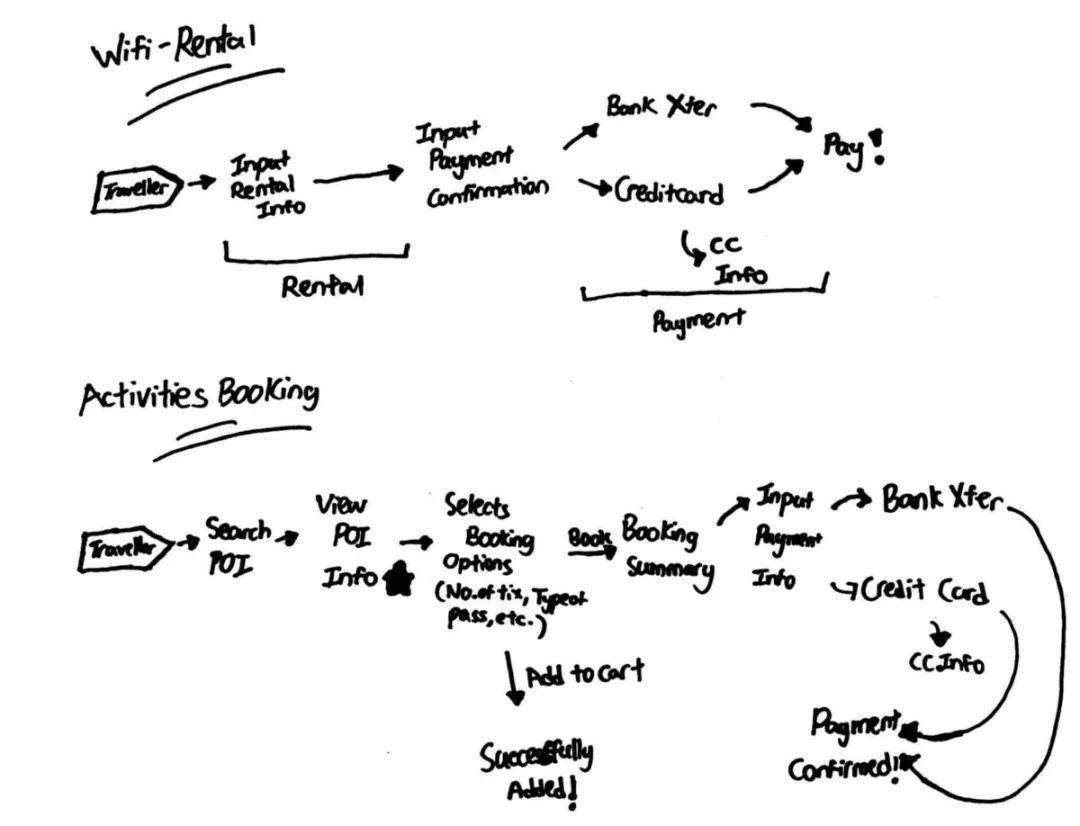 Wifi-Rental
Traveller
Input
Rental
Info
Rental
Input
Payment
Confirmation
Bank Xfer
Creditcard
CC
Info
Pay!
Payment
Activities Booking
Traveller
Search
POI
View
POI
Info
Selects
Booking
Options
(No. of tix, Type of
pass, etc.)
Add to cart
Successfully
Added!
Book
Booking
Summary
Input
Payment
Info
Bank Xfer
Credit Card
CC Info
Payment
Confirmed!